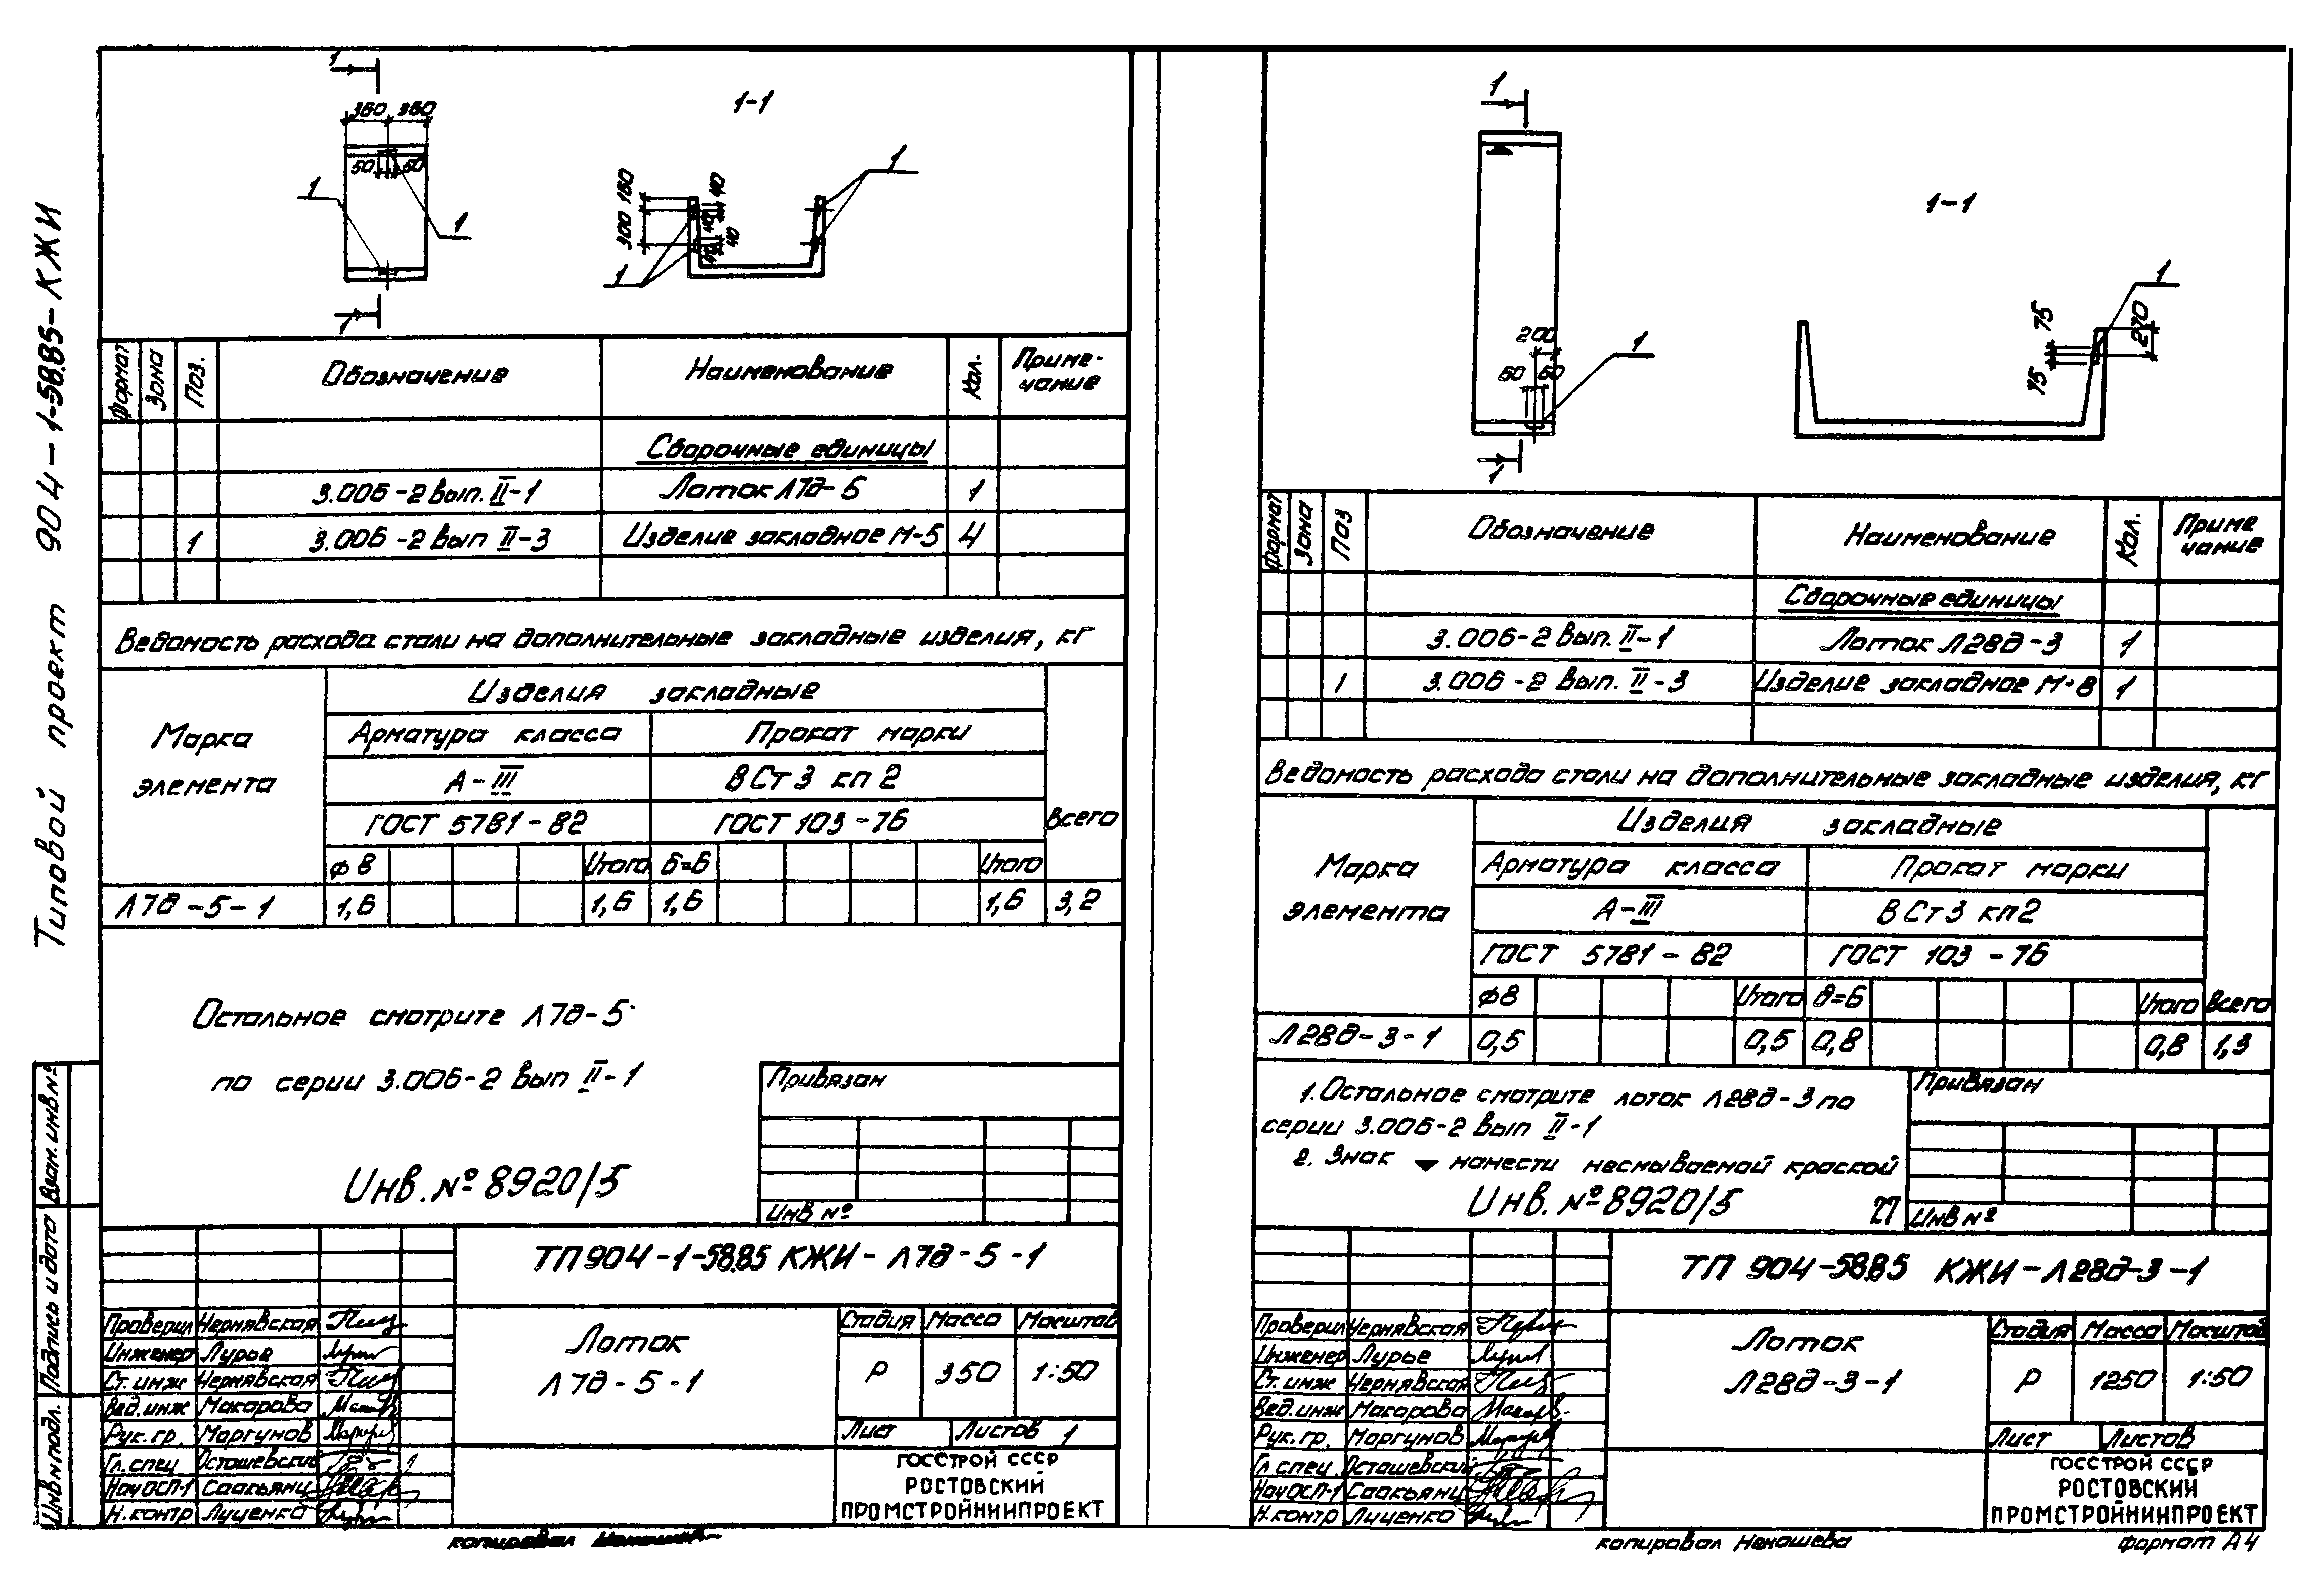 Типовой проект 904-1-58.85-КЖИ
Взам. инв. №
Подпись и дата
Инв. № подл.
1
360 360
50 50
1
1
1
1-1
160
300
40
40
40
1
1
Формат Зона Поз. Обозначение Наименование Кол. Приме-
чание
Сборочные единицы
3.006-2 вып. II-1 Лоток Л7д-5 1
1 3.006-2 вып II-3 Изделие закладное М-5 4
Ведомость расхода стали на дополнительные закладные изделия, кг
Марка
элемента
Изделия закладные
Арматура класса Прокат марки
А-III ВСт3 кп2
ГОСТ 5781-82 ГОСТ 103-76 Всего
ф8 Итого Б=6 Итого
Л7д-5-1 1,6 1,6 1,6 1,6 3,2
Остальное смотрите Л7д-5
по серии 3.006-2 вып II-1
Инв. № 8920/5
Привязан
Инв №
ТП 904-1-58.85 КЖИ-Л7д-5-1
Проверил Чернявская
Инженер Лурье
Ст. инж Чернявская
Вед. инж Макарова
Рук. гр. Моргунов
Гл. спец Осташевский
Нач ОСП-1 Саакьянц
Н. контр Луценко
Лоток
Л7д-5-1
Стадия Масса Масштаб
Р 350 1:50
Лист Листов 1
ГОССТРОЙ СССР
РОСТОВСКИЙ
ПРОМСТРОЙНИИПРОЕКТ
копировал
1
200
50 50
1
1
1-1
75
75
270
1
Формат Зона Поз Обозначение Наименование Кол. Приме
чание
Сборочные единицы
3.006-2 вып. II-1 Лоток Л28д-3 1
1 3.006-2 вып. II-3 Изделие закладное М-8 1
Ведомость расхода стали на дополнительные закладные изделия, кг
Марка
элемента
Изделия закладные
Арматура класса Прокат марки
А-III ВСт3 кп2
ГОСТ 5781-82 ГОСТ 103-76
ф8 Итого д=6 Итого Всего
Л28д-3-1 0,5 0,5 0,8 0,8 1,3
1. Остальное смотрите лоток Л28д-3 по
серии 3.006-2 вып II-1
2. Знак ▼ нанести несмываемой краской
Инв. № 8920/5 27
Привязан
Инв №
ТП 904-58.85 КЖИ-Л28д-3-1
Проверил Чернявская
Инженер Лурье
Ст. инж Чернявская
Вед. инж Макарова
Рук. гр. Моргунов
Гл. спец. Осташевский
Нач ОСП-1 Саакьянц
Н. контр Луценко
Лоток
Л28д-3-1
Стадия Масса Масштаб
Р 1250 1:50
Лист Листов
ГОССТРОЙ СССР
РОСТОВСКИЙ
ПРОМСТРОЙНИИПРОЕКТ
копировал Ненашева формат А4